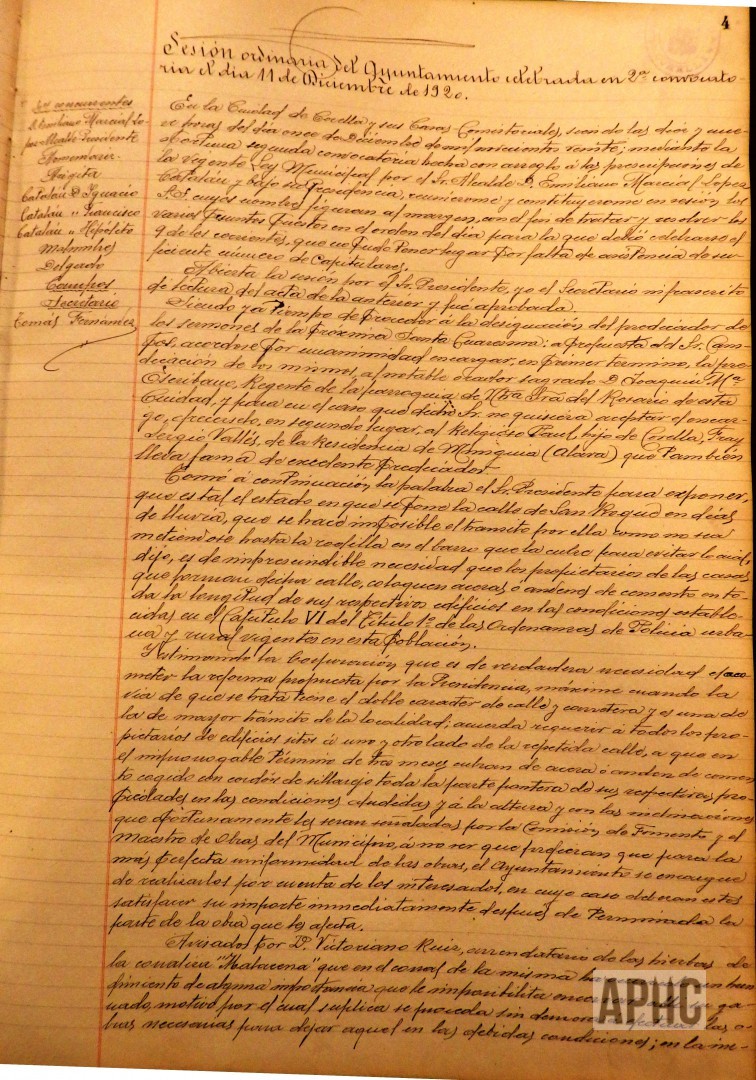 4
Sesión ordinaria del Ayuntamiento celebrada en 2ª convocato-
ria el dia 11 de Diciembre de 1920.
Sres concurrentes
D. Emiliano Marcial Lo-
pez Alcalde Presidente
Catalán D. Ignacio
Catalán " Francisco
Catalán " Hipolito
Delgado
Campos
Secretario
Tomás Fernández
En la Ciudad de Corella y sus Casas Consistoriales, siendo las diez y nue-
ve horas del dia once de Diciembre de mil novecientos veinte; mediante la
oportuna segunda convocatoria hecha con arreglo á las prescripciones de
la vigente Ley Municipal por el Sr. Alcalde D. Emiliano Marcial Lopez
Catalán y bajo su Presidencia, reunieronse y constituyeronse en sesión, los
S.S. cuyos nombres figuran al margen, con el fin de tratar y resolver los
varios asuntos puestos en el orden del dia para la que debió celebrarse el
9 de los corrientes, que no pudo tener lugar por falta de asistencia de su-
ficiente numero de Capitulares.
Abierta la sesión por el Sr. Presidente, yo el Secretario infrascrito
dí lectura del acta de la anterior y fué aprobada.
Siendo ya tiempo de proceder á la designación del predicador de
los sermones de la próxima Santa Cuaresma; a propuesta del Sr. Cam-
pos, acordose por unanimidad encargar, en primer termino, la pre-
dicación de los mismos, al notable orador sagrado D. Joaquin Mª
Escribano, Regente de la parroquia de Ntra Sra del Rosario de esta
Ciudad, y para en el caso que dicho Sr. no quisiera aceptar el encar-
go, ofrecerlo, en segundo lugar, al Religioso Paul, hijo de Corella, Fray
Sergio Vallés, de la Residencia de Murguia (Alava) que también
lleva fama de excelente predicador.
Tomó á continuación la palabra el Sr. Presidente para exponer,
que es tal el estado en que se pone la calle de San Roque en dias
de lluvia, que se hace imposible el transito por ella como no sea
metiendose hasta la rodilla en el barro que la cubre para evitar lo cual,
dijo, es de imprescindible necesidad que los propietarios de las casas
que forman dicha calle, coloquen aceras ó andenes de cemento en to-
da la longitud de sus respectivos edificios en las condiciones estable-
cidas en el Capitulo VI del Titulo 1º de las Ordenanzas de Policia urba-
na y rural vigentes en esta Población.
Y estimando la Corporación que es de verdadera necesidad el aco-
meter la reforma propuesta por la Presidencia, máxime cuando la
via de que se trata tiene el doble caracter de calle y carretera y es una de
la de mayor transito de la localidad; acuerda requerir á todos los pro-
pietarios de edificios sitos á uno y otro lado de la repetida calle, a que en
el improrrogable término de tres meses cubran de acera ó anden de cemen-
to cogido con cordón de sillarejo toda la parte frontera de sus respectivas pro-
piedades en las condiciones aludidas y á la altura y con las inclinaciones
que oportunamente les seran señaladas por la Comisión de Fomento y el
Maestro de Obras del Municipio, á no ser que prefieran que para la
más perfecta uniformidad de las obras, el Ayuntamiento se encargue
de realizarlas por cuenta de los interesados, en cuyo caso deberan estos
satisfacer su importe inmediatamente después de terminada la
parte de la obra que les afecta.
Avisados por D. Victoriano Ruiz, arrendatario de las hierbas de
la corraliza "Matacena" que en el corral de la misma
dimiento de alguna importancia que le imposibilita su ga-
nado, motivo por el cual suplica se proceda sin demora las o-
bras necesarias para dejar aquel en las debidas condiciones; en la in-
APHC